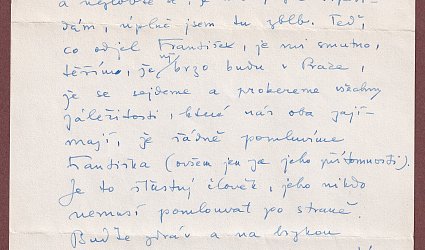 dám, úplně jsem tu zblbl. Teď,
co odjel František, je mi smutno,
těším se, že již brzo budu v Praze,
že se sejdeme a probereme všechny
záležitosti, které nás oba zají-
mají, že řádně pomluvíme
Františka (ovšem jen za jeho přítomnosti).
Je to šťastný člověk, jeho nikdo
nemusí pomlouvat po straně.
Buďte zdráv a na brzkou